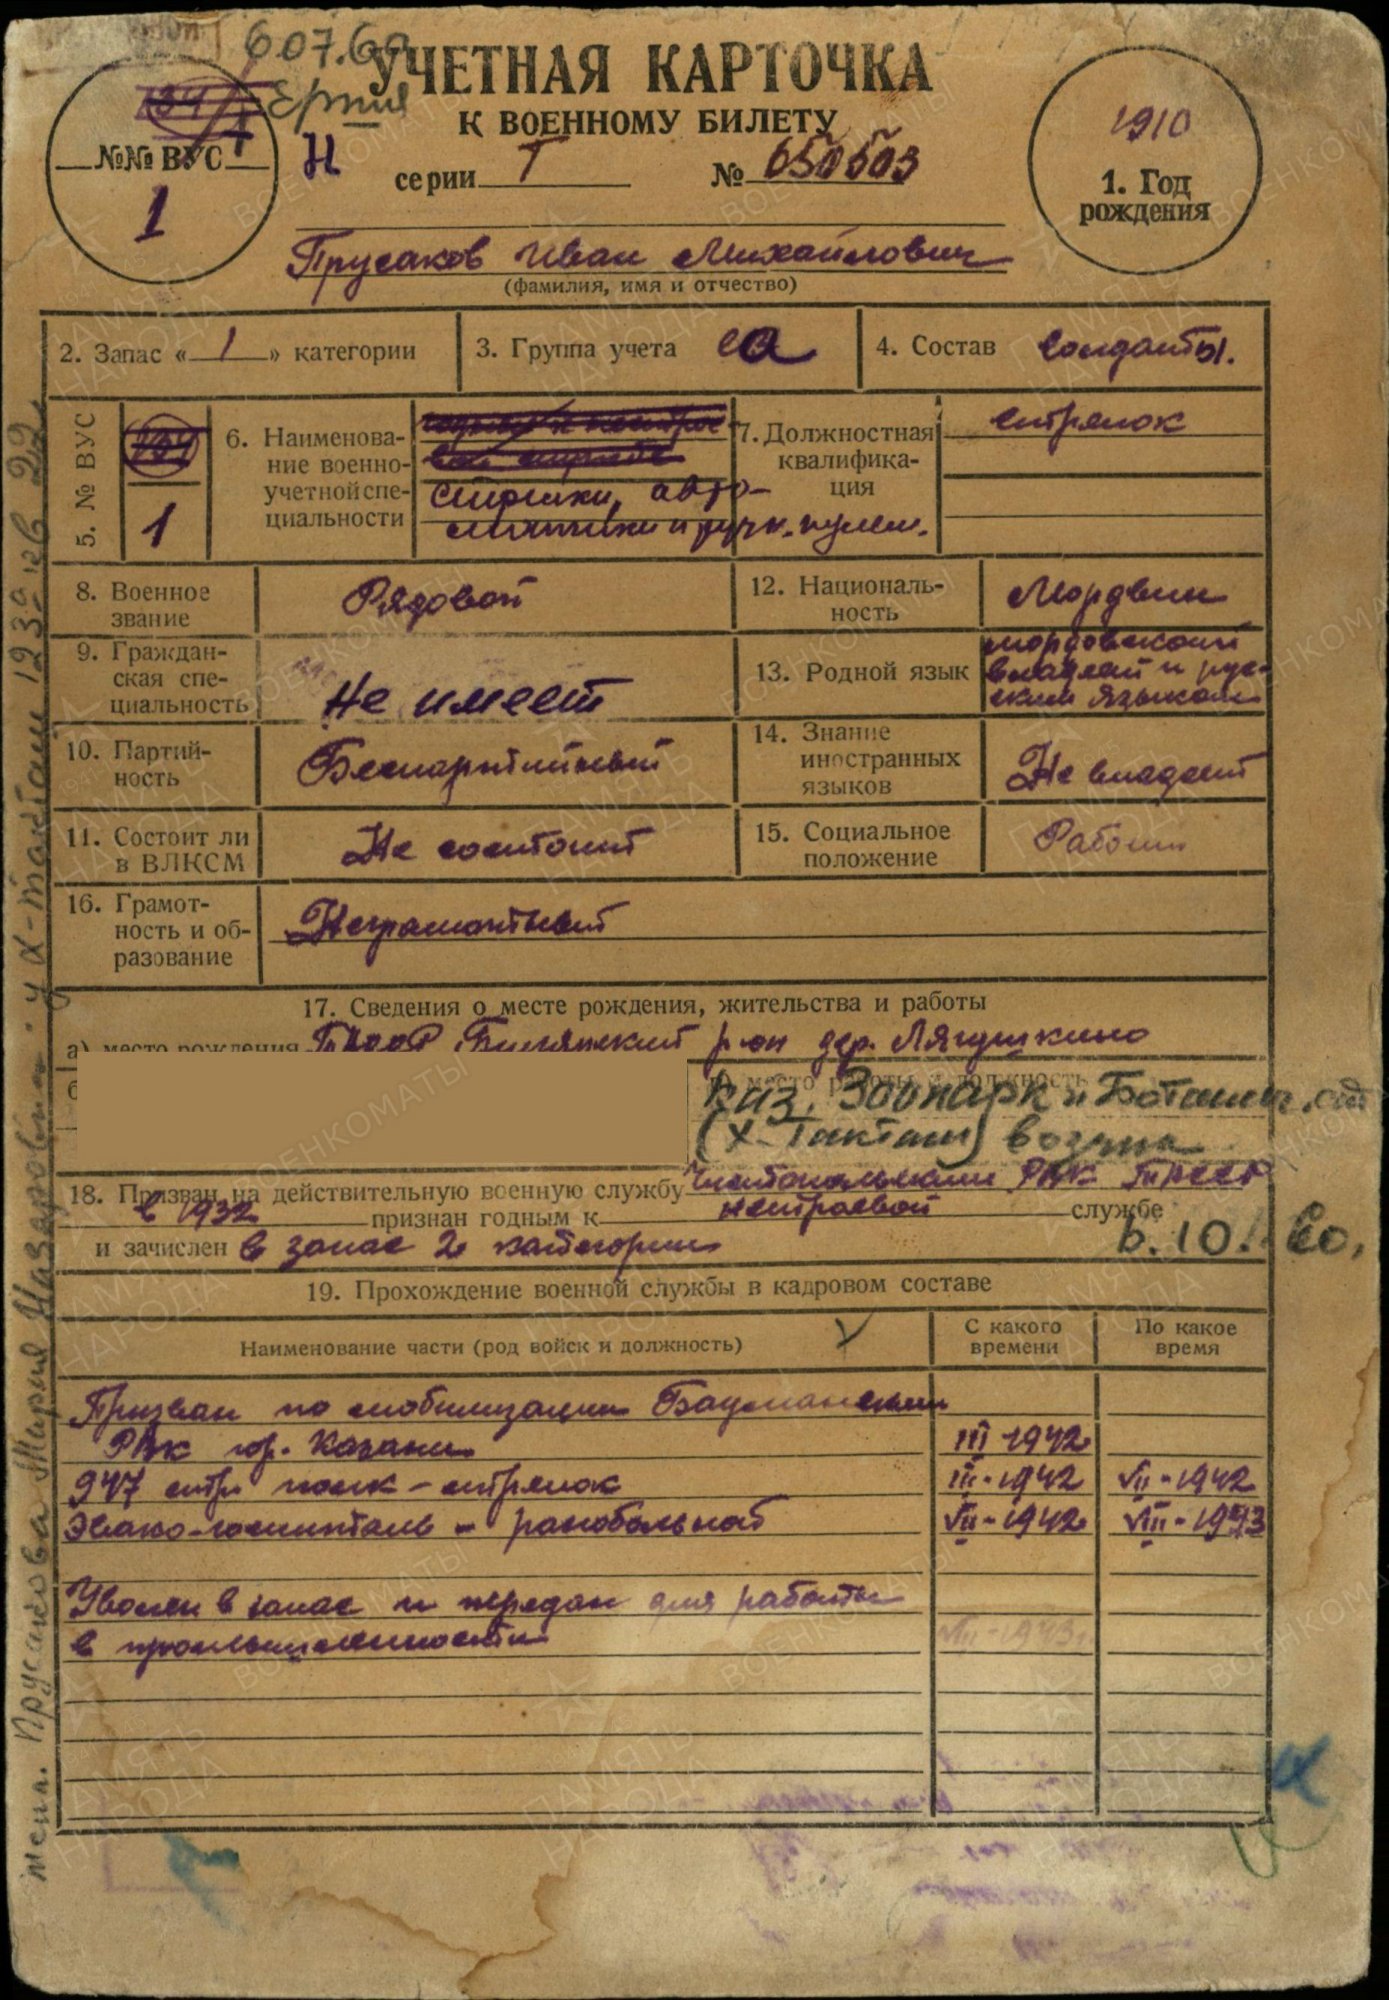 607.60
УЧЕТНАЯ КАРТОЧКА
К ВОЕННОМУ БИЛЕТУ
№№ ВУС
1
Н
серии Т № 650503
1910
1. Год
рождения
Прусаков Иван Михайлович
(фамилия, имя и отчество)
2. Запас « 1 » категории
3. Группа учета СА
4. Состав солдаты.
5. № ВУС
134
1
6. Наименова-
ние военно-
учетной спе-
циальности
Стрелки, авто-
матчики и ручн. пулем.
7. Должностная
квалифика-
ция
стрелок
8. Военное
звание
Рядовой
12. Националь-
ность
Мордвин
9. Граждан-
ская спе-
циальность
Не имеет
13. Родной язык
мордовский
владеет и рус-
ским языком
10. Партий-
ность
Беспартийный
14. Знание
иностранных
языков
Не владеет
11. Состоит ли
в ВЛКСМ
Не состоит
15. Социальное
положение
Рабочий
16. Грамот-
ность и об-
разование
Неграмотный
17. Сведения о месте рождения, жительства и работы
а) место рождения ТАССР Билярский р-он дер. Лягушкино
место работы и должность
Каз. Зоопарк и Ботанич. сад
(Х-Такташ) возчик
18. Призван на действительную военную службу Чистопольским РВК ТАССР
в 1932 признан годным к нестроевой службе
и зачислен в запас 2 категории
6.10. 60.
19. Прохождение военной службы в кадровом составе
Наименование части (род войск и должность)
С какого
времени
По какое
время
Призван по мобилизации Бауманским
РВК гор. Казани III-1942
947 стр. полк - стрелок III-1942 VII-1942
Эвако-госпиталь - ранбольной VII-1942 VIII-1943
Уволен в запас и передан для работы
в промышленности VIII-1943г.
жена. Прусакова Мария Назаровна - ул. Х-Такташ 123 кв 22
ПАМЯТЬ
НАРОДА
ВОЕНКОМАТЫ